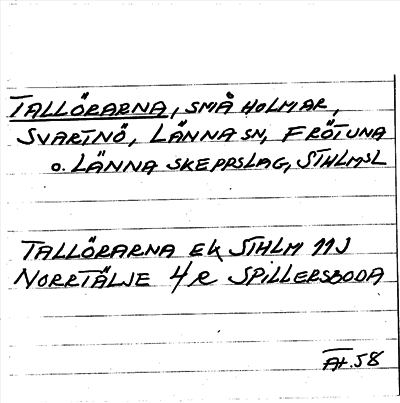 TALLÖRARNA, SMÅ HOLMAR,
SVARTNÖ, LÄNNA SN, FRÖTUNA
o. LÄNNA SKEPPSLAG, STHLMSL
TALLÖRARNA EK STHLM 11J
NORRTÄLJE 4 R SPILLERSBODA
At. 58